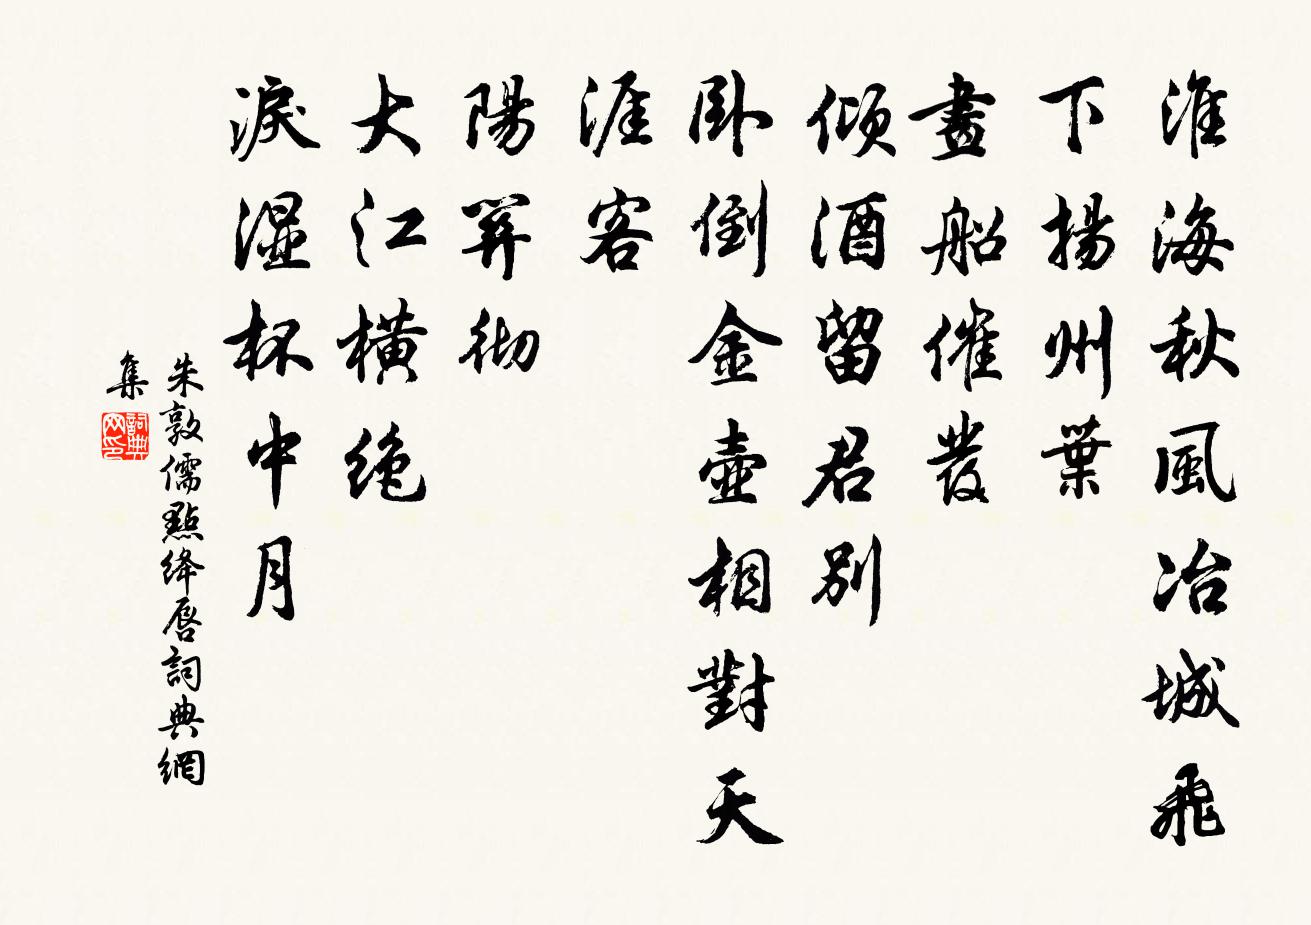 淮海秋風冶城飛
下揚州葉
畫船催發
傾酒留君別
卧倒金壺相對天
涯客
陽關彻
大江橫絕
淚湿杯中月
朱敦儒點絳唇詞典網
集
詞典网印